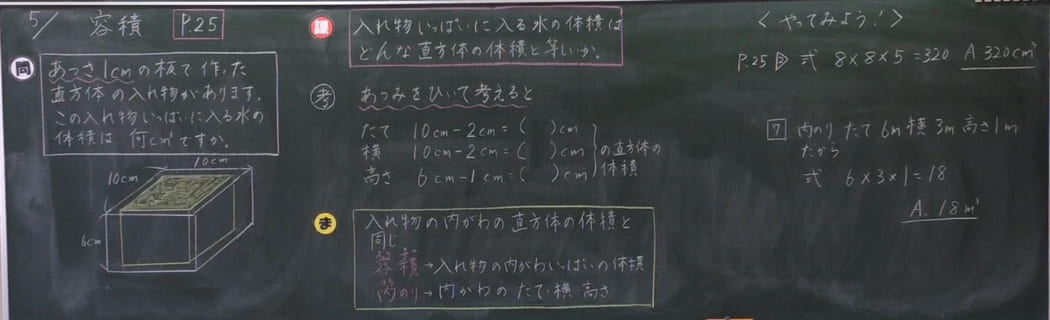 5/
容積
P.25
問
あつさ1cmの板で作った
直方体の入れ物があります。
この入れ物いっぱいに入る水の
体積は 何cm³ですか。
10cm
10cm
6cm
課
入れ物いっぱいに入る水の体積は
どんな直方体の体積と等しいか。
考
あつみをひいて考えると…
たて 10cm-2cm=( )cm
横 10cm-2cm=( )cm
高さ 6cm-1cm=( )cm
の直方体の
体積
ま
入れ物の内がわの直方体の体積と
同じ
容積→入れ物の内がわいっぱいの体積
内のり→内がわの たて・横・高さ
<やってみよう!>
P.25 式 8×8×5=320 A 320cm³
7 内のり たて6m 横3m 高さ1m
だから
式 6×3×1=18
A. 18m³